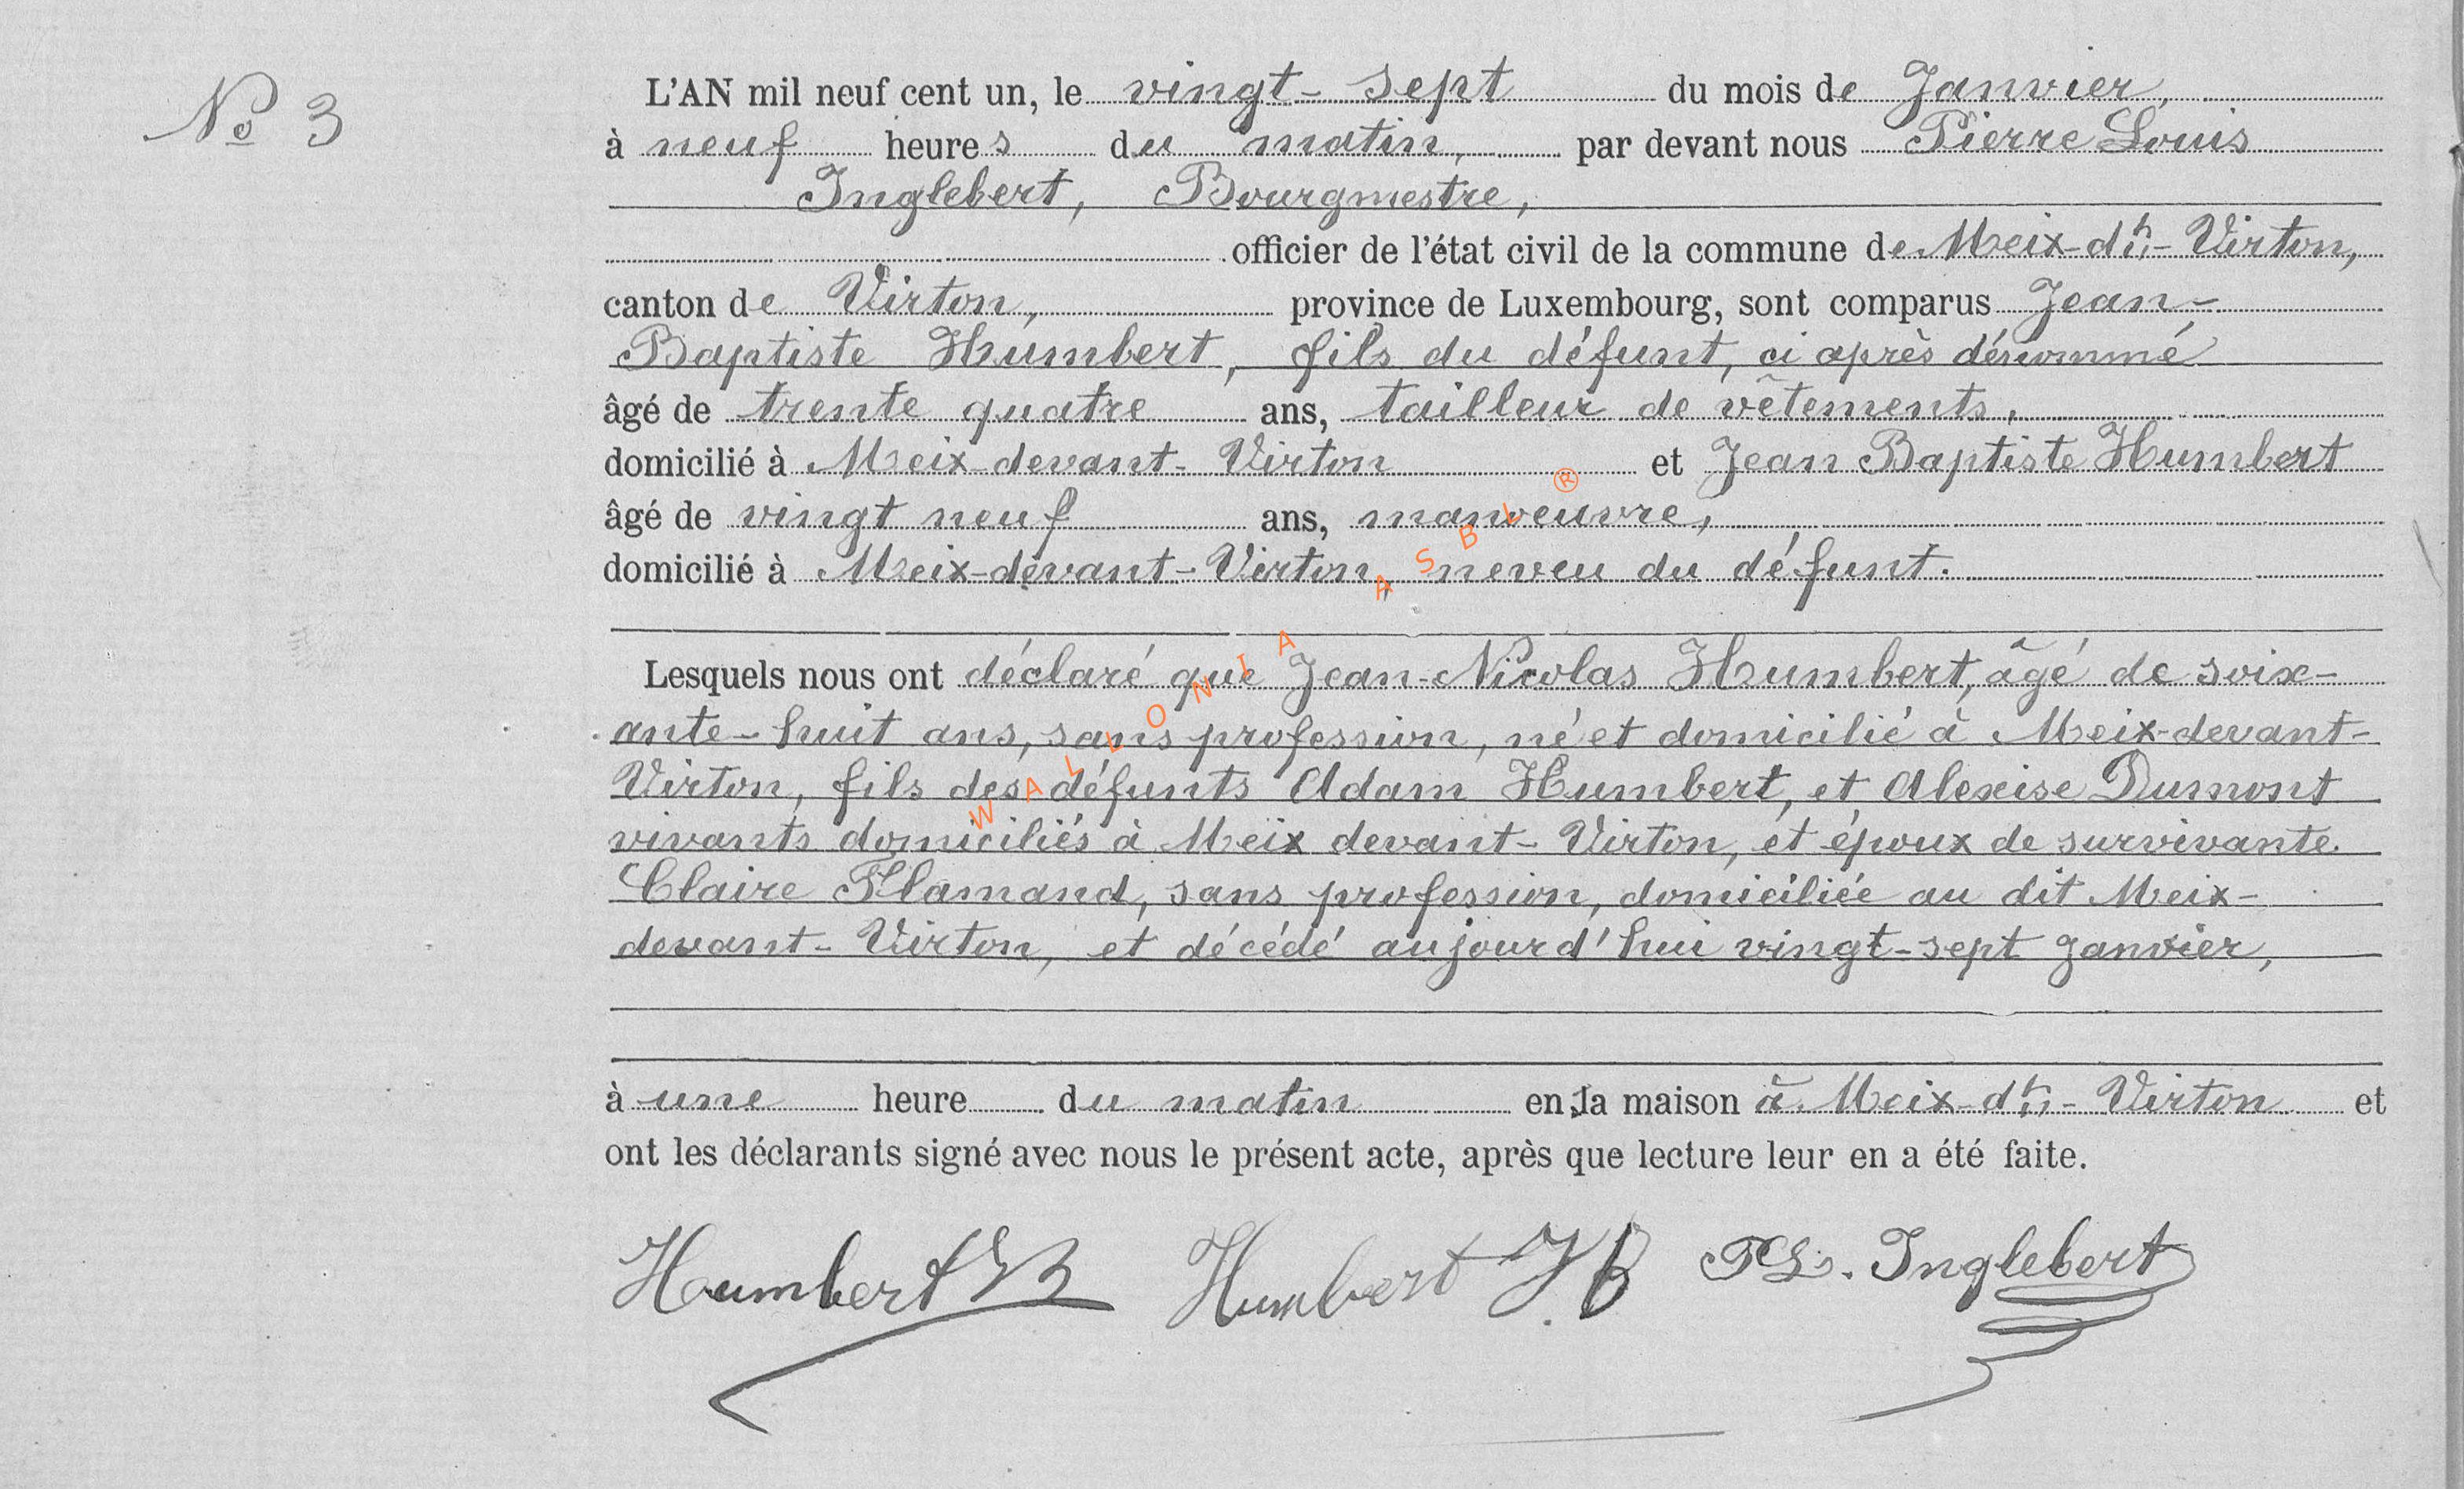 No 3
L'AN mil neuf cent un, le vingt-sept du mois de Janvier,
à neuf heures du matin, par devant nous Pierre Louis
Inglebert, Bourgmestre,
officier de l'état civil de la commune de Meix-dt-Virton,
canton de Virton, province de Luxembourg, sont comparus Jean-
Baptiste Humbert, fils du défunt, ci après dénommé
âgé de trente quatre ans, tailleur de vêtements,
domicilié à Meix-devant-Virton et Jean Baptiste Humbert
âgé de vingt neuf ans, manoeuvre,
domicilié à Meix-devant-Virton, neveu du défunt.
Lesquels nous ont déclaré que Jean-Nicolas Humbert, âgé de soix-
ante-huit ans, sans profession, né et domicilié à Meix-devant-
Virton, fils des défunts Adam Humbert, et Alexise Dumont
vivants domiciliés à Meix devant-Virton, et époux de survivante
Claire Flamand, sans profession, domiciliée au dit Meix-
devant-Virton, et décédé aujourd'hui vingt-sept Janvier,
à une heure du matin en la maison à Meix-dt-Virton et
ont les déclarants signé avec nous le présent acte, après que lecture leur en a été faite.
Humbert JB Humbert J.B PL. Inglebert
WALLONIA ASBL ®